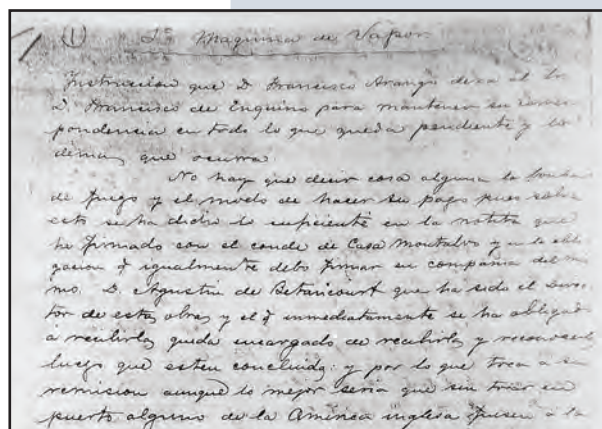 (1) Sre Maquina de Vapor
Instruccion que D. Francisco Arango dexa al Sr.
D. Francisco de Enquino para mantener su corres
pondencia en todo lo que queda pendiente y lo
demas que ocurra
No hay que decir cosa alguna la bomba
de fuego y el modo de hacer su pago pues sobre
esto se ha dicho lo suficiente en la notita que
he firmado con el conde de Casa Montalvo y en la obli
gacion q igualmente debo firmar en compañia del mis
mo. D. Agustin de Betancourt que ha sido el Direc
tor de estas obras y el q inmediatamente se ha obligado
á recibirlas queda encargado de recibirlas y reconocerlas
luego que esten concluidas: y por lo que toca a su
remision aunque lo mejor seria que sin tocar en
puerto alguno de la América inglesa fuesen a la